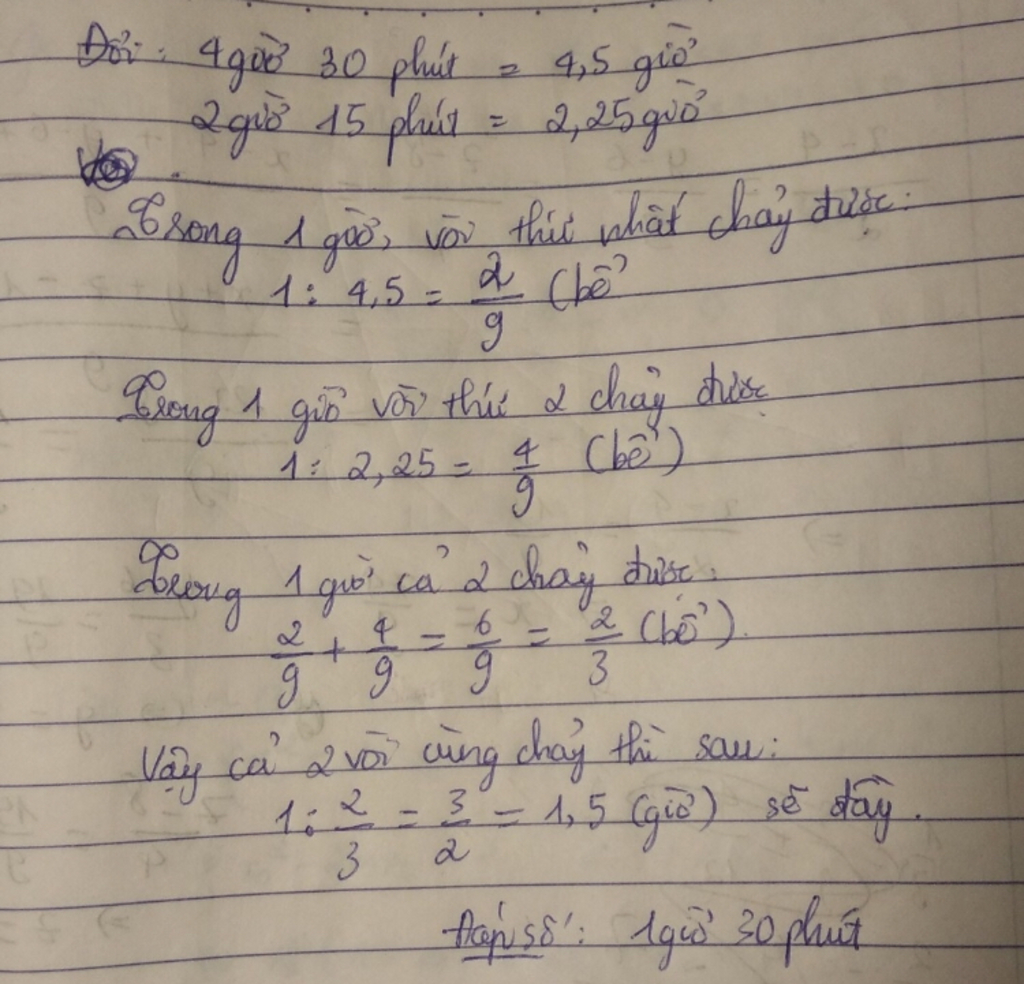 Đổi: 4 giờ 30 phút = 4,5 giờ
2 giờ 15 phút = 2,25 giờ
Trong 1 giờ, vòi thứ nhất chảy được:
1 : 4,5 = 2/9 (bể
Trong 1 giờ vòi thứ 2 chảy được
1 : 2,25 = 4/9 (bể)
Trong 1 giờ cả 2 chảy được:
2/9 + 4/9 = 6/9 = 2/3 (bể).
Vậy cả 2 vòi cùng chảy thì sau:
1 : 2/3 = 3/2 = 1,5 (giờ) sẽ đầy.
Đáp số: 1 giờ 30 phút